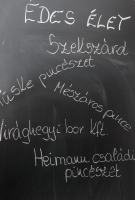 ÉDES ÉLET
Szekszárd
Tüske pincészet
Mészáros pince
Virághegyi bor Kft.
Heimann családi
pincészet